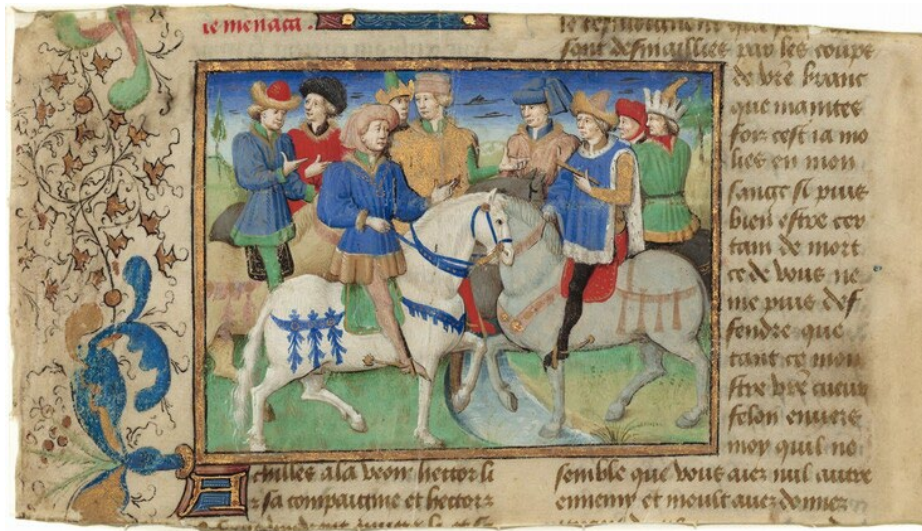 le menaca.
Achilles ala veoir hector li
r sa compaignie et hector z
sont desmaillies par les coups
de vre branc
que maintes
fois cest ia mo
lies en mon
sancc si puis
bien estre cer
tain de mort
ce de vous ne
me puis def
fendre que
tant ce mon
stre vre cueur
felon envers
moy quil no
semble que vous aiez nul autre
ennemy et moult avez donner